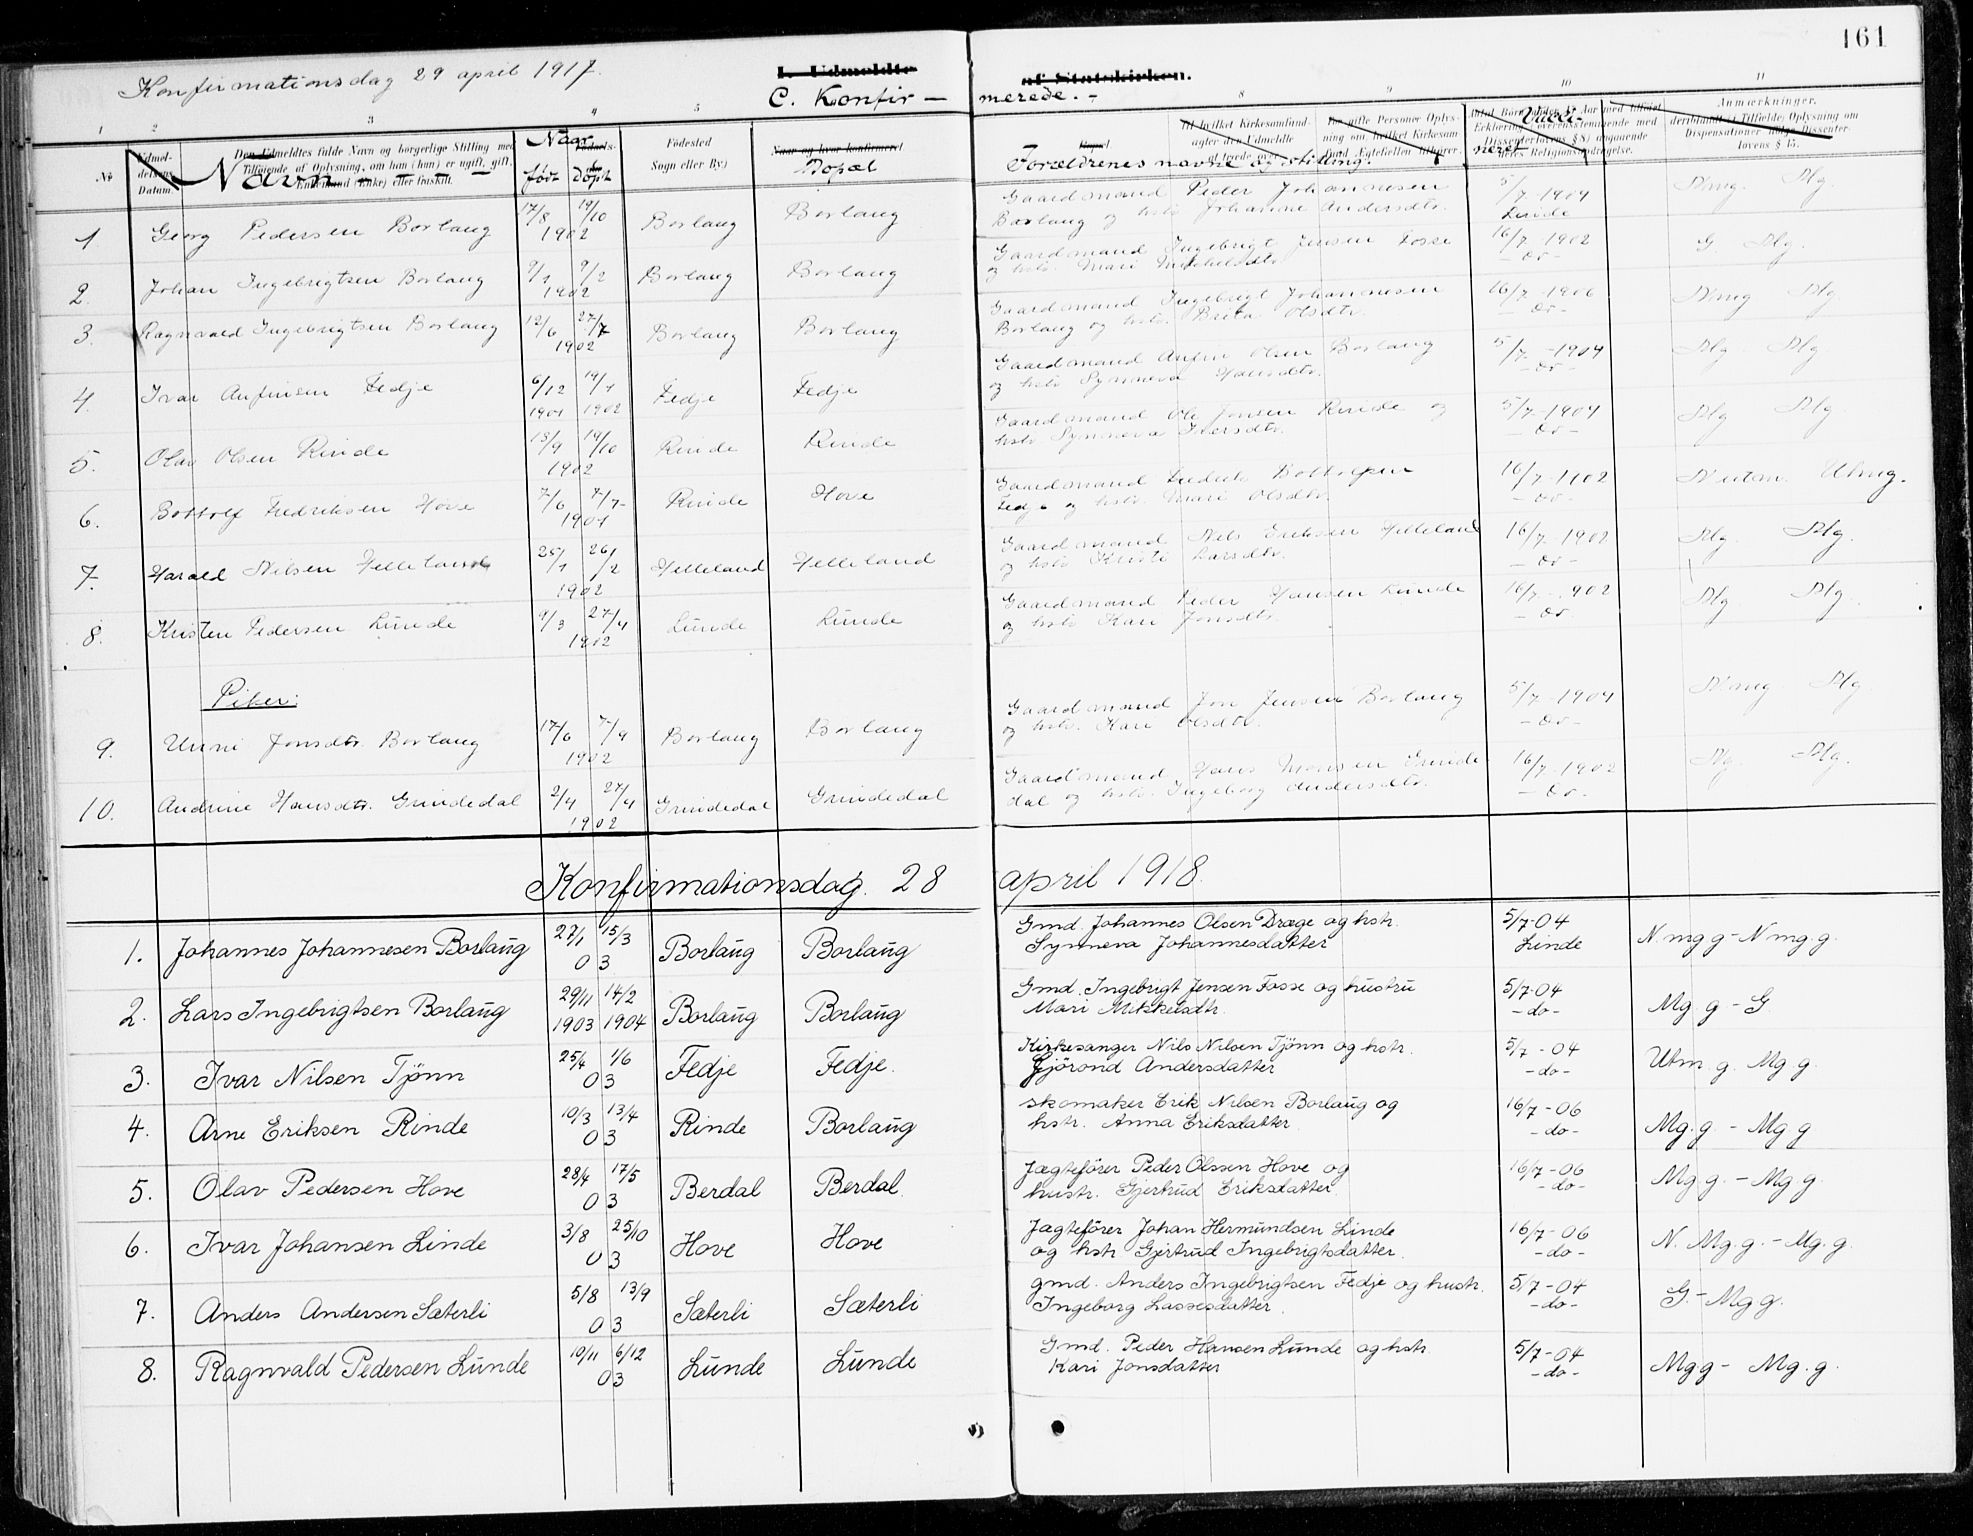 161
Konfirmationsdag 29 april 1917.
I. Udmeldte af Statskirken.
C. Konfir- merede.-
1 2 3 4 5 8 9 10 11
No. Navn Naar født Døpt Fødested (Sogn eller By.) Bopæl Forældrenes navne og stilling. Vacci- neret Anmærkninger.
1 Georg Pedersen Borlaug 17/8 19/10 1902 Borlaug Borlaug Gaardmand Peder Johannesen 5/7-1904 Nmg. Mg.
Borlaug og hstr Johanne Andersdtr. Linde
2. Johan Ingebrigtsen Borlaug 9/1 9/2 1902 Borlaug Borlaug Gaardmand Ingebrigt Jensen Fosse 16/7-1902 G Mg.
og hstr. Mari Mikkelsdtr. -do-
3. Ragnvald Ingebrigtsen Borlaug 12/6 27/7 1902 Borlaug Borlaug Gaardmand Ingebrigt Johannesen 16/7-1906 Nmg Mg
Borlaug og hstr. Brita Olsdtr. -do-
4. Ivar Anfinsen Fedje 6/12 1901 19/1 1902 Fedje Fedje Gaardmand Anfin Olsen Borlaug 5/7-1904 Mg Mg
og hstr Synneva Hansdtr. -do-
5. Olav Olsen Rinde 13/9 19/10 1902 Rinde Rinde Gaardmand Ole Jonsen Rinde og 5/7-1904 Mg Mg
hstr Synneva Iversdtr. -do-
6. Bottolf Fredriksen Hove 7/6 7/7 1901 Rinde Hove Gaardmand Fredrik Bottolfsen 16/7-1902 Utmg.
Fedje og hstr. Mari Olsdtr. -do-
7. Harald Nilsen Helleland 25/1 26/2 1902 Helleland Helleland Gaardmand Nils Eriksen Helleland 16/7-1902 Mg. Mg.
og hstr Kristi Larsdtr. -do-
8. Kristen Pedersen Lunde 9/3 27/4 1902 Lunde Lunde Gaardmand Peder Hansen Lunde 16/7-1902 Mg Mg.
og hstr Kari Jonsdtr. -do-
Piker:
9. Unni Jonsdtr. Borlaug 17/6 7/9 1902 Borlaug Borlaug Gaardmand Jon Jensen Borlaug 5/7-1904 Nmg Mg
og hstr. Kari Olsdtr. -do-
10. Andrine Hansdtr. Grindedal 2/4 27/4 1902 Grindedal Grindedal Gaardmand Hans Monsen Grinde 16/7-1902 Mg. Mg.
dal og hstr. Ingeborg Andersdtr. -do-
Konfirmationsdag. 28 april 1918.
1. Johannes Johannesen Borlaug 27/1 15/3 03 Borlaug Borlaug Gmd. Johannes Olsen Dræge og hstr. 5/7-04 N.mg g-N mg.g.
Synneva Johannesdatter Linde
2. Lars Ingebrigtsen Borlaug 29/11 1903 14/2 1904 Borlaug Borlaug Gmd. Ingebrigt Jensen Fosse og hustru 5/7-04 Mg g-G
Mari Mikkelsdtr. -do-
3. Ivar Nilsen Tjønn 25/4 1/6 03 Fedje Fedje. Kirkesanger Nils Nilsen Tjønn og hstr. 5/7-04 Utm.g. Mg.g.
Gjørond Andersdatter -do-
4. Arne Eriksen Rinde 10/3 13/4 03 Rinde Borlaug skomaker Erik Nilsen Borlaug og 16/7-06 Mg.g.-Mg g
hstr. Anna Eriksdatter -do-
5. Olav Pedersen Hove 28/4 17/5 03 Berdal Berdal. Jægtefører Peder Olssen Hove og 16/7-06 Mg g.-Mg g.
hustr. Gjertrud Eriksdatter. -do-
6. Ivar Johansen Linde 3/8 25/10 03 Hove Hove Jægtefører Johan Hermundsen Linde 16/7-06 N. Mg.g.-Mg.g.
og hstr Gjertrud Ingebrigtsdatter. -do-
7. Anders Andersen Sæterli 5/8 13/9 03 Sæterli Sæterli gmd. Anders Ingebrigtsen Fedje og hustr. 5/7-04 G.-Mg g.
Ingeborg Lassesdatter. -do-
8. Ragnvald Pedersen Lunde 10/11 6/12 03 Lunde Lunde Gmd. Peder Hansen Lunde og hstr. 5/7-04 Mg g- Mg.g.
Kari Jonsdatter -do-